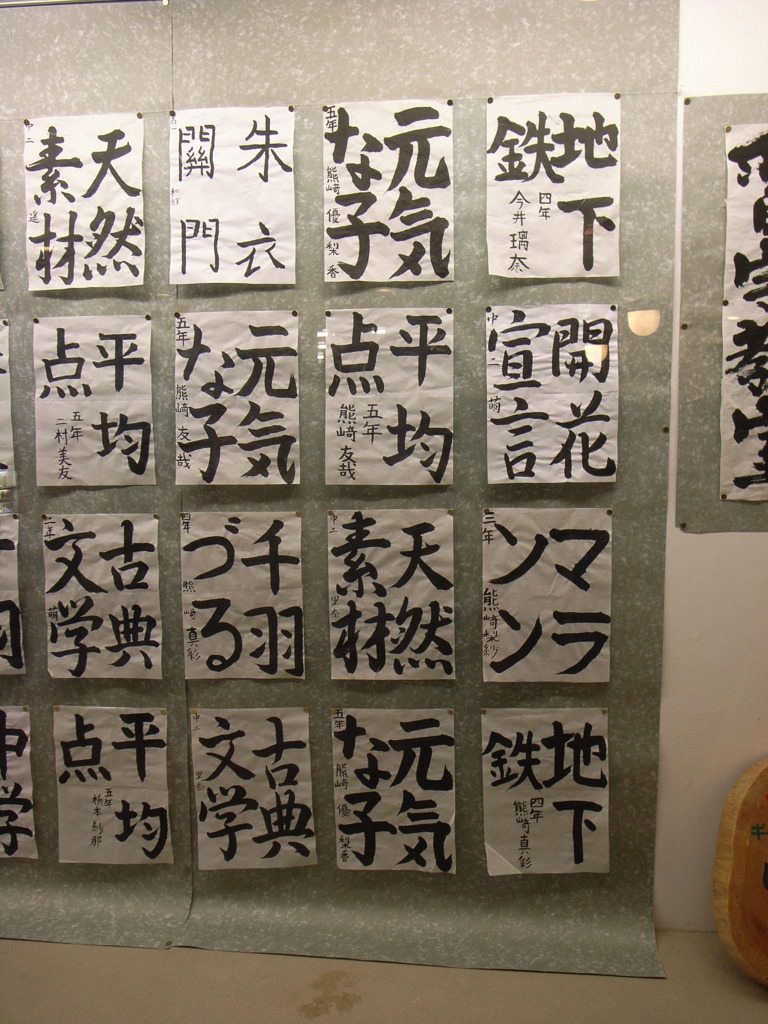 天然
素材
中二
遥
朱衣
關門
元気
な子
五年
熊崎 優梨香
地下
鉄
四年
今井璃奈
平均
点
五年
二村美友
元気
な子
五年
熊崎 友哉
平均
点
五年
熊崎友哉
開花
宣言
中二
萌
古典
文学
萌
千羽
づる
四年
熊崎真彩
天然
素材
中二
里奈
マラ
ソン
三年
熊崎梨紗
平均
点
五年
栃本紗那
古典
文学
中二
里奈
元気
な子
五年
熊崎 優梨香
地下
鉄
四年
熊崎真彩
中
学
字教室
ギ